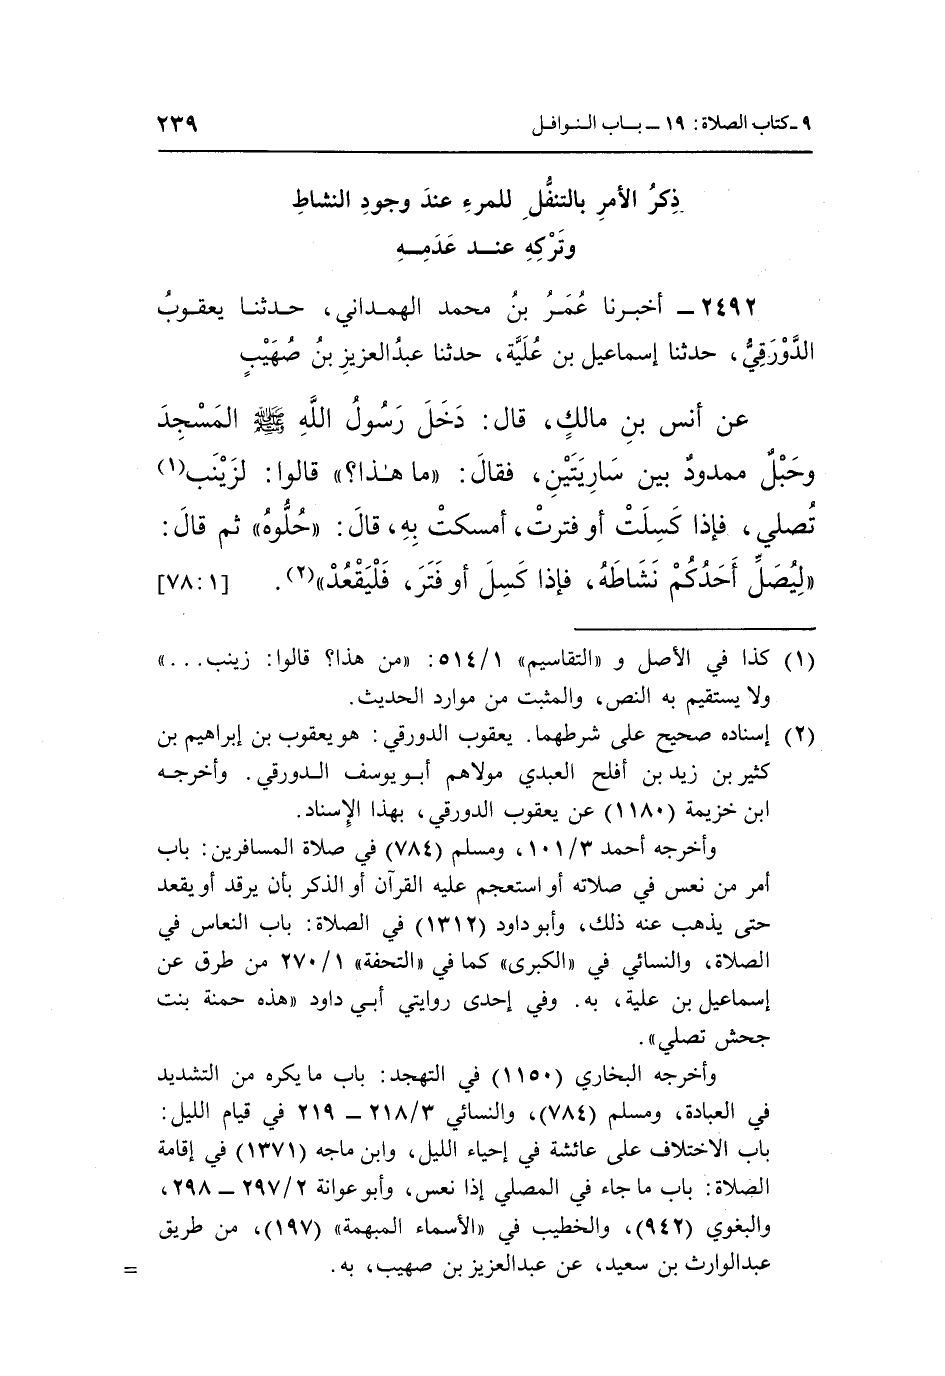 ٩ـ كتاب الصلاة: ١٩ ــ بـاب النـوافـل ٢٣٩
ذِكرُ الأمرِ بالتنفُّلِ للمرءِ عندَ وجودِ النشاطِ
وتَرْكِهِ عنــد عَدَمِــهِ
٢٤٩٢ ــ أخبـرنا عُمَرُ بنُ محمد الهمـداني، حـدثنـا يعقـوبُ
الدَّوْرَقِيُّ، حدثنا إسماعيل بن عُلَيَّة، حدثنا عبدُالعزيزِ بنُ صُهَيْبٍ
عن أنس بنِ مالكٍ، قال: دَخَلَ رَسُولُ اللَّهِ ﷺ المَسْجِدَ
وحَبْلٌ ممدودٌ بين سَارِيَتَيْنِ، فقالَ: «ما هـٰذا؟» قالوا: لزَيْنَب(١)
تُصلي، فإذا كَسِلَتْ أو فترتْ، أمسكتْ بِهِ، قالَ: «حُلُّوهُ» ثم قالَ:
«لِيُصَلِّ أَحَدُكُمْ نَشَاطَهُ، فإذا كَسِلَ أو فَتَرَ، فَلْيَقْعُدْ»(٢). [١: ٧٨]
(١) كذا في الأصل و «التقاسيم» ٥١٤/١: «من هذا؟ قالوا: زينب...»
ولا يستقيم به النص، والمثبت من موارد الحديث.
(٢) إسناده صحيح على شرطهما. يعقوب الدورقي: هو يعقوب بن إبراهيم بن
كثير بن زيد بن أفلح العبدي مولاهم أبـو يوسف الـدورقي. وأخرجـه
ابن خزيمة (١١٨٠) عن يعقوب الدورقي، بهذا الإسناد.
وأخرجه أحمد ١٠١/٣، ومسلم (٧٨٤) في صلاة المسافرين: باب
أمر من نعس في صلاته أو استعجم عليه القرآن أو الذكر بأن يرقد أو يقعد
حتى يذهب عنه ذلك، وأبو داود (١٣١٢) في الصلاة: باب النعاس في
الصلاة، والنسائي في «الكبرى» كما في «التحفة» ٢٧٠/١ من طرق عن
إسماعيل بن علية، به. وفي إحدى روايتي أبـي داود «هذه حمنة بنت
جحش تصلي».
وأخرجه البخاري (١١٥٠) في التهجد: باب ما يكره من التشديد
في العبادة، ومسلم (٧٨٤)، والنسائي ٢١٨/٣ ــ ٢١٩ في قيام الليل:
باب الاختلاف على عائشة في إحياء الليل، وابن ماجه (١٣٧١) في إقامة
الصلاة: باب ما جاء في المصلي إذا نعس، وأبو عوانة ٢٩٧/٢ ــ ٢٩٨،
والبغوي (٩٤٢)، والخطيب في «الأسماء المبهمة» (١٩٧)، من طريق
عبدالوارث بن سعيد، عن عبدالعزيز بن صهيب، به. =